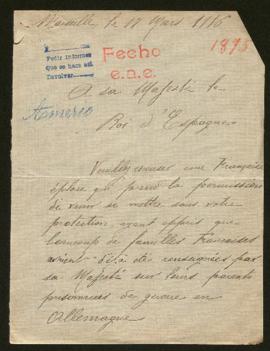 Marseille le 17 Mars 1916
Pedir informes
que se hara así
Devolver
Fecho
e.n.e.
1895
A sa Majesté le
Roi d'Espagne
Veuillez excuser une Française
éplorée qui prend la permission
de venir se mettre sous votre
protection, ayant appris que
beaucoup de familles Françaises
avaient déjà été renseignées par
sa Majesté sur leurs parents
prisonniers de guerre en
Allemagne